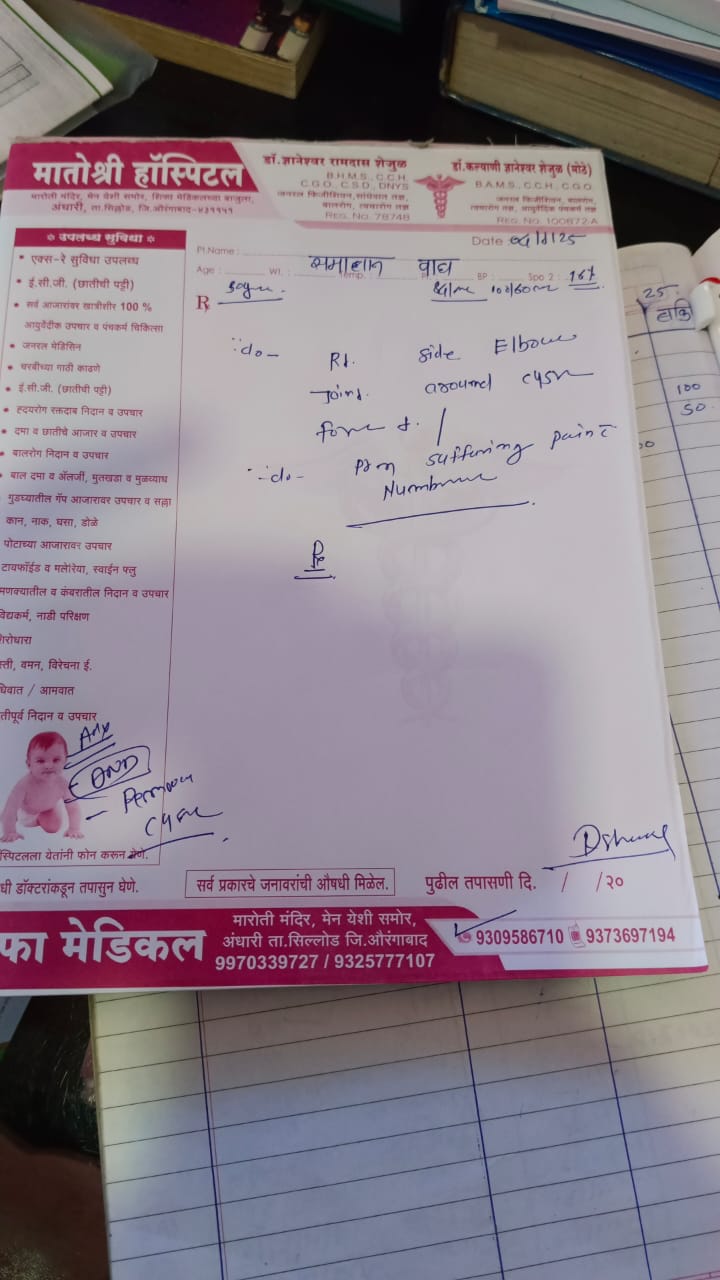 मातोश्री हॉस्पिटल
मारोती मंदिर, मेन येशी समोर, शिफा मेडिकलच्या बाजुला,
अंधारी, ता.सिल्लोड, जि.औरंगाबाद-४३११५१
डॉ.ज्ञानेश्वर रामदास शेजुळ
B.H.M.S., C.C.H,
C.G.O., C.S.D., DNYS
जनरल फिजीशियन,सांधेवात तज्ञ,
बालरोग, त्वचारोग तज्ञ
REG. No. 78748
डॉ.कल्याणी ज्ञानेश्वर शेजुळ (मोठे)
B.A.M.S., C.C.H., C.G.O.
जनरल फिजीशियन, बालरोग,
त्वचारोग तज्ञ, आयुर्वेदिक पंचकर्म तज्ञ
REG. No. 100672-A
Date
Pt.Name :
समाधान वाघ
Age : Wt. : Temp. : BP : Spo 2 :
R
Rt. side Elbow
Joint around cyst
suffering pain
Numbness
उपलब्ध सुविधा
एक्स-रे सुविधा उपलब्ध
ई.सी.जी. (छातीची पट्टी)
सर्व आजारांवर खात्रीशीर 100 %
आयुर्वेदीक उपचार व पंचकर्म चिकित्सा
जनरल मेडिसिन
चरबीच्या गाठी काढणे
ई.सी.जी. (छातीची पट्टी)
हृदयरोग रक्तदाब निदान व उपचार
दमा व छातीचे आजार व उपचार
बालरोग निदान व उपचार
बाल दमा व ॲलर्जी, मुतखडा व मुळव्याध
गुडघ्यातील गॅप आजारावर उपचार व सल्ला
कान, नाक, घसा, डोळे
पोटाच्या आजारावर उपचार
टायफॉईड व मलेरिया, स्वाईन फ्लु
मणक्यातील व कंबरातील निदान व उपचार
विद्धकर्म, नाडी परिक्षण
शिरोधारा
स्ती, वमन, विरेचना ई.
धिवात / आमवात
तीपूर्व निदान व उपचार
Adv
स्पिटलला येतांनी फोन करून येणे.
धी डॉक्टरांकडून तपासुन घेणे.
सर्व प्रकारचे जनावरांची औषधी मिळेल.
पुढील तपासणी दि. / /२०
फा मेडिकल
मारोती मंदिर, मेन येशी समोर,
अंधारी ता.सिल्लोड जि.औरंगाबाद
9970339727 / 9325777107
9309586710 9373697194
25
100
50